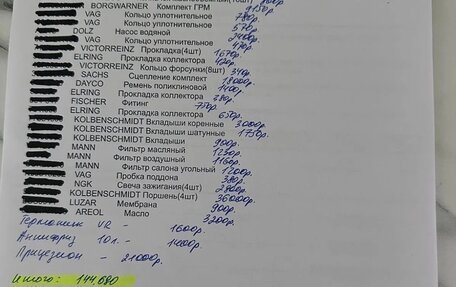 BORGWARNER Комплект ГРМ 9150р.
VAG Кольцо уплотнительное 780р.
VAG Кольцо уплотнительное 570р.
DOLZ Насос водяной 2400р.
VAG Кольцо уплотнительное 470р.
VICTORREINZ Прокладка(4шт) 1670р.
ELRING Прокладка коллектора 420р.
VICTORREINZ Кольцо форсунки(8шт) 340р.
SACHS Сцепление комплект 18000р.
DAYCO Ремень поликлиновой 1400р.
ELRING Прокладка коллектора 280р.
FISCHER Фитинг 750р.
ELRING Прокладка коллектора 650р.
KOLBENSCHMIDT Вкладыши коренные 3000р.
KOLBENSCHMIDT Вкладыши шатунные 1750р.
KOLBENSCHMIDT Вкладыши 900р.
MANN Фильтр масляный 1250р.
MANN Фильтр воздушный 1160р.
MANN Фильтр салона угольный 1200р.
VAG Пробка поддона 380р.
NGK Свеча зажигания(4шт) 2800р.
KOLBENSCHMIDT Поршень(4шт) 36000р.
LUZAR Мембрана 900р.
AREOL Масло 3200р.
Герметик VR - 1600р.
Антифриз 10л. - 1400р.
Прицезион - 21000р.
Итого: 144,680